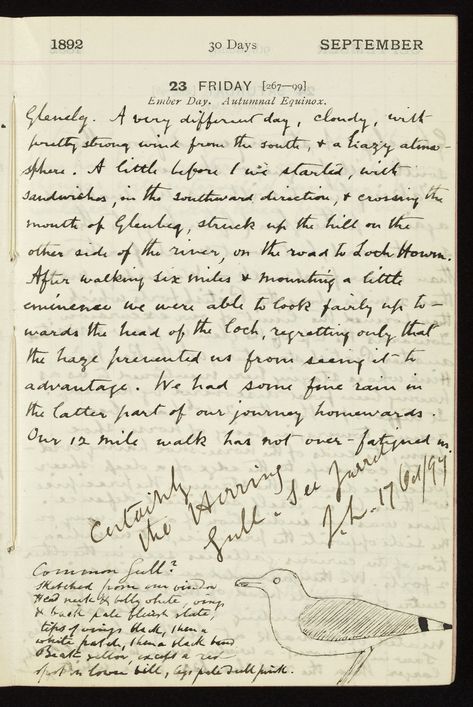 1892 30 Days SEPTEMBER
23 FRIDAY [267—99]
Ember Day. Autumnal Equinox.
Glenelg. A very different day, cloudy, with
pretty strong wind from the south, & a hazy atmo-
sphere. A little before 1 we started, with
sandwiches, in the southward direction, & crossing the
mouth of Glenbeg, struck up the hill on the
other side of the river, on the road to Loch Hourn.
After walking six miles & mounting a little
eminence we were able to look fairly up to-
wards the head of the loch, regretting only that
the haze prevented us from seeing it to
advantage. We had some fine rain in
the latter part of our journey homewards.
Our 12 mile walk has not over-fatigued us.
Certainly
the Herring
Gull - See
17 Oct/97
Common Gull?
Sketched from our window
Head neck & belly white, wings
& back pale bluish slate,
tips of wings black, then a
white patch, then a black band
Beak yellow, except a red
spot on lower bill, legs pale dull pink.